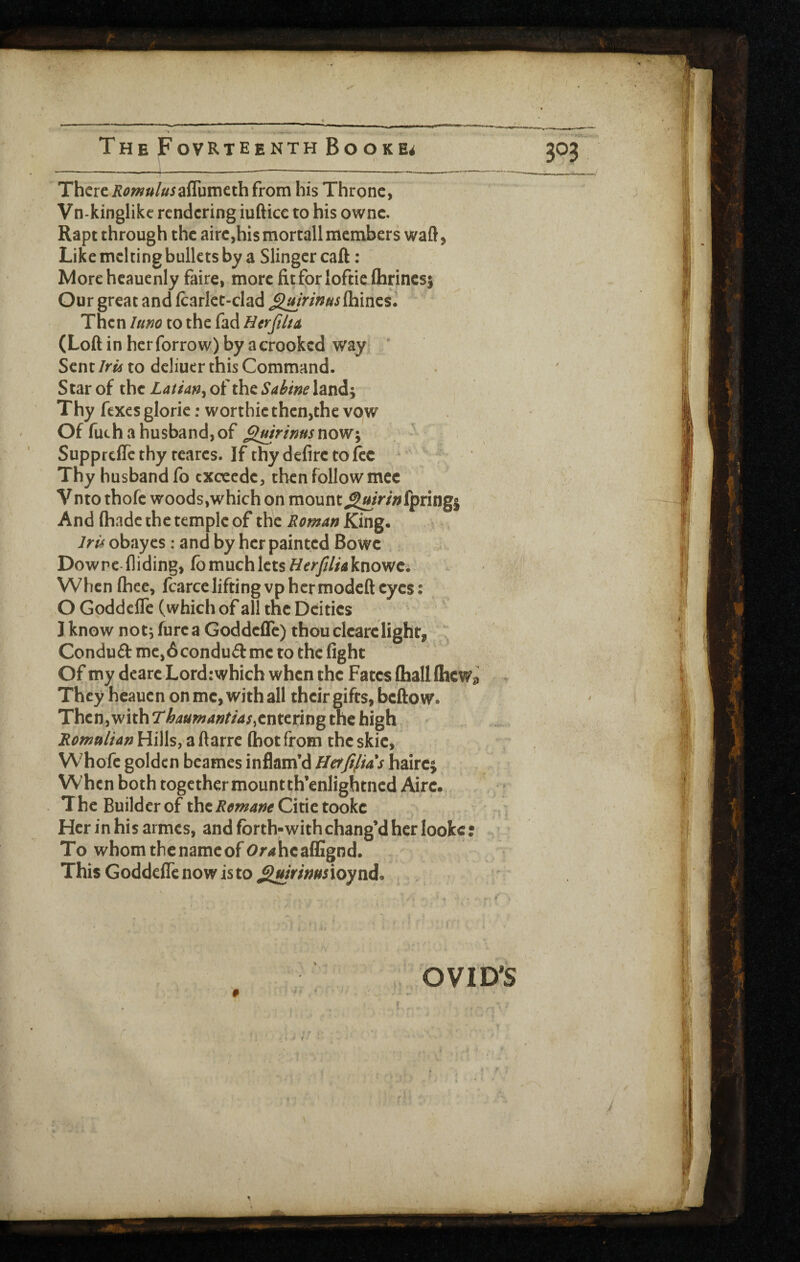 THE FOVRTEENTH BOOKE. 303
There Romulus aſſumeth from his Throne,
Vn-kinglike rendering iuſtice to his owne.
Rapt through the aire, his mortall members waſt,
Like melting bullets by a Slinger caſt:
More heauenly faire, more fit for loftie ſhrines;
Our great and ſcarlet-clad Quirinus ſhines.
Then Iuno to the ſad Herſilia
(Loſt in her ſorrow) by a crooked way
Sent Iris to deliuer this Command.
Star of the Latian, of the Sabine land;
Thy ſexes glorie: worthie then, the vow
Of ſuch a husband, of Quirinus now;
Suppreſſe thy teares. If thy deſire to ſee
Thy husband ſo exceede, then follow mee
Vnto thoſe woods, which on mount Quirin ſpring;
And ſhade the temple of the Roman King.
Iris obayes: and by her painted Bowe
Downe-ſliding, ſo much lets Herſilia knowe.
When ſhee, ſcarce lifting vp her modeſt eyes:
O Goddeſſe (which of all the Deities
I know not; ſure a Goddeſſe) thou cleare light,
Conduct me, ô conduct me to the ſight
Of my deare Lord: which when the Fates ſhall ſhew,
They heauen on me, with all their gifts, beſtow.
Then, with Thaumantias, entering the high
Romulian Hills, a ſtarre ſhot from the skie,
Whoſe golden beames inflam'd Herſilia's haire;
When both together mount th'enlightned Aire.
The Builder of the Romane Citie tooke
Her in his armes, and forth-with chang'd her looke:
To whom the name of Ora he aſſignd.
This Goddeſſe now is to Quirinus ioynd.
OVID'S